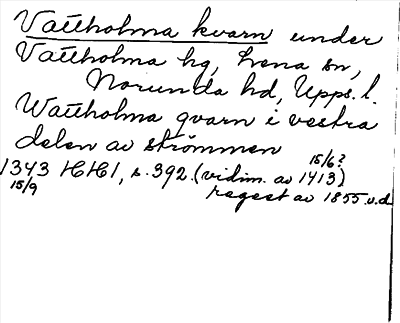 Vattholma kvarn under
Vattholma hg, Lena sn,
Norunda hd, Upps. l.
Wattholma qvarn i vestra
delen av strömmen
15/6?
1343 HH1, s. 392. (vidim. av 1413)
15/9 regest av 1855 u.d.